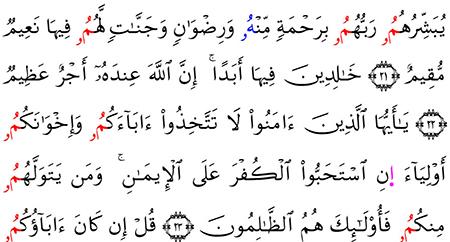 يُبَشِّرُهُمُۥ رَبُّهُمُۥ بِرَحْمَةٍ مِّنْهُۥ وَرِضْوَٰنٍ وَجَنَّٰتٍ لَّهُمُۥ فِيهَا نَعِيمٌ
مُّقِيمٌ ﴿٢١﴾ خَٰلِدِينَ فِيهَا أَبَدًا ۚ إِنَّ ٱللَّهَ عِندَهُۥٓ أَجْرٌ عَظِيمٌ
﴿٢٢﴾ يَٰٓأَيُّهَا ٱلَّذِينَ ءَامَنُوا۟ لَا تَتَّخِذُوٓا۟ ءَابَآءَكُمُۥ وَإِخْوَٰنَكُمُۥ
أَوْلِيَآءَ إِنِ ٱسْتَحَبُّوا۟ ٱلْكُفْرَ عَلَى ٱلْإِيمَٰنِ ۚ وَمَن يَتَوَلَّهُمُۥ
مِنكُمُۥ فَأُو۟لَٰٓئِكَ هُمُ ٱلظَّٰلِمُونَ ﴿٢٣﴾ قُلْ إِن كَانَ ءَابَآؤُكُمُۥ